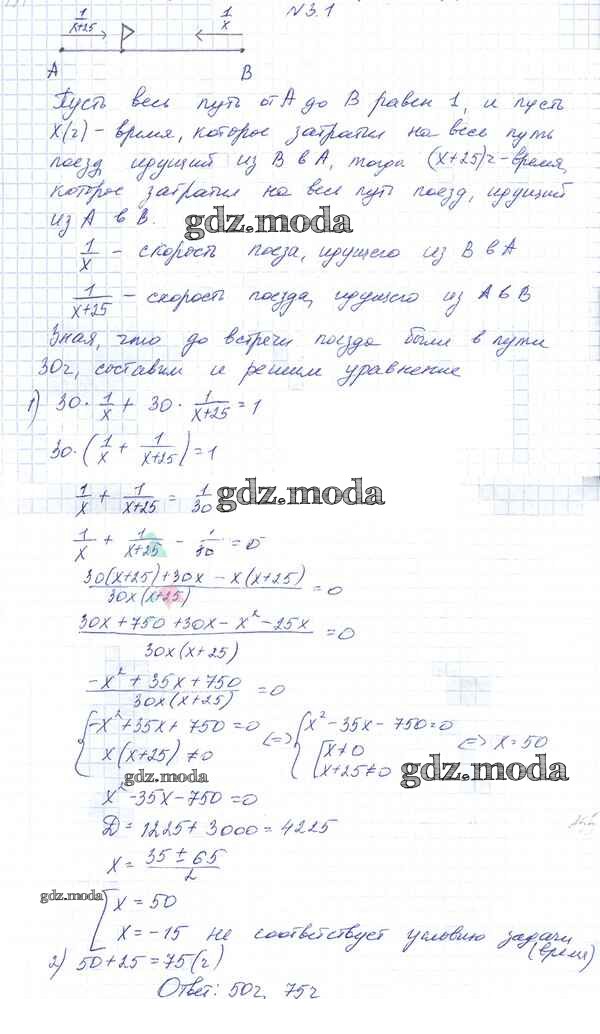 №3.1
1/(x+25) → ← 1/x
A B
Пусть весь путь от A до B равен 1, и пусть
x(ч) - время, которое затратил на весь путь
поезд идущий из B в A, тогда (x+25)ч - время,
которое затратил на весь путь поезд, идущий
из A в B.
gdz.moda
1/x - скорость поезда, идущего из B в A
1/(x+25) - скорость поезда, идущего из A в B
Зная, что до встречи поезда были в пути
30ч, составим и решим уравнение
1) 30 · 1/x + 30 · 1/(x+25) = 1
30 · (1/x + 1/(x+25)) = 1
1/x + 1/(x+25) = 1/30
gdz.moda
1/x + 1/(x+25) - 1/30 = 0
(30(x+25)+30x - x(x+25))/(30x(x+25)) = 0
(30x+750+30x-x²-25x)/(30x(x+25)) = 0
(-x²+35x+750)/(30x(x+25)) = 0
{-x²+35x+750=0 (=) {x²-35x-750=0 (=) x=50
x(x+25)≠0 [x≠0
x+25≠0
gdz.moda
gdz.moda
x²-35x-750=0
D = 1225+3000=4225
x = (35±65)/2
gdz.moda
[x = 50
x = -15 не соответствует условию задачи
(время)
2) 50+25=75(ч)
Ответ: 50ч, 75ч